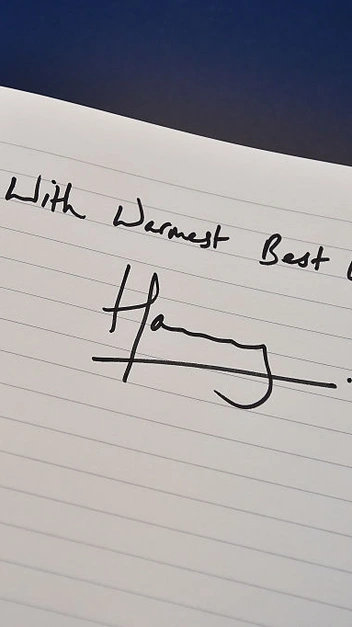 With Warmest Best
Harry